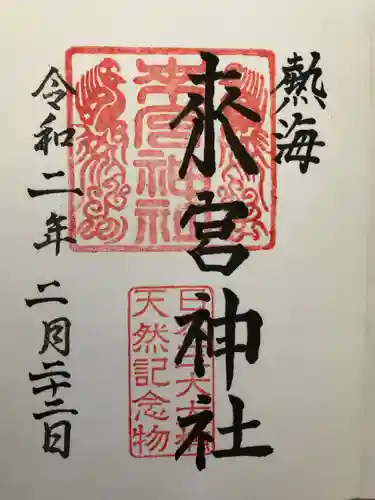 熱海
來宮神社
令和二年 二月二十二日
來宮神社
天然記念物